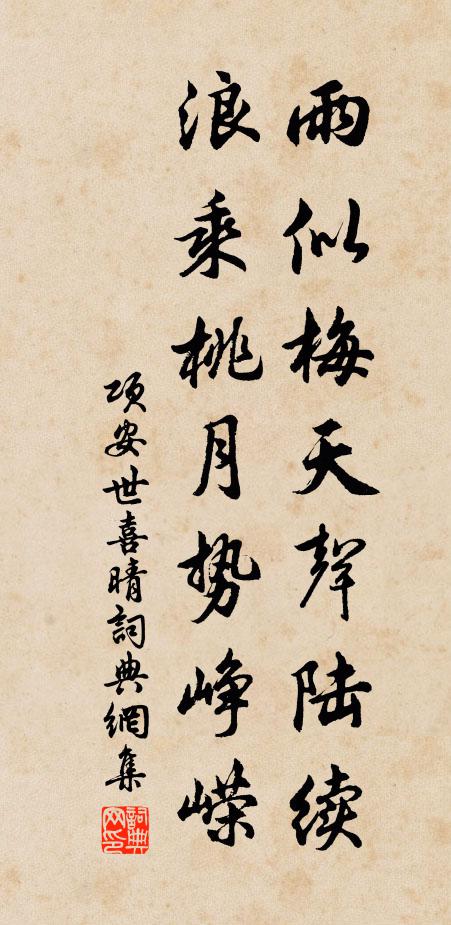 雨似梅天聲陆續
浪乘桃月势峥嵘
项安世喜晴詞典網集
詞典网印